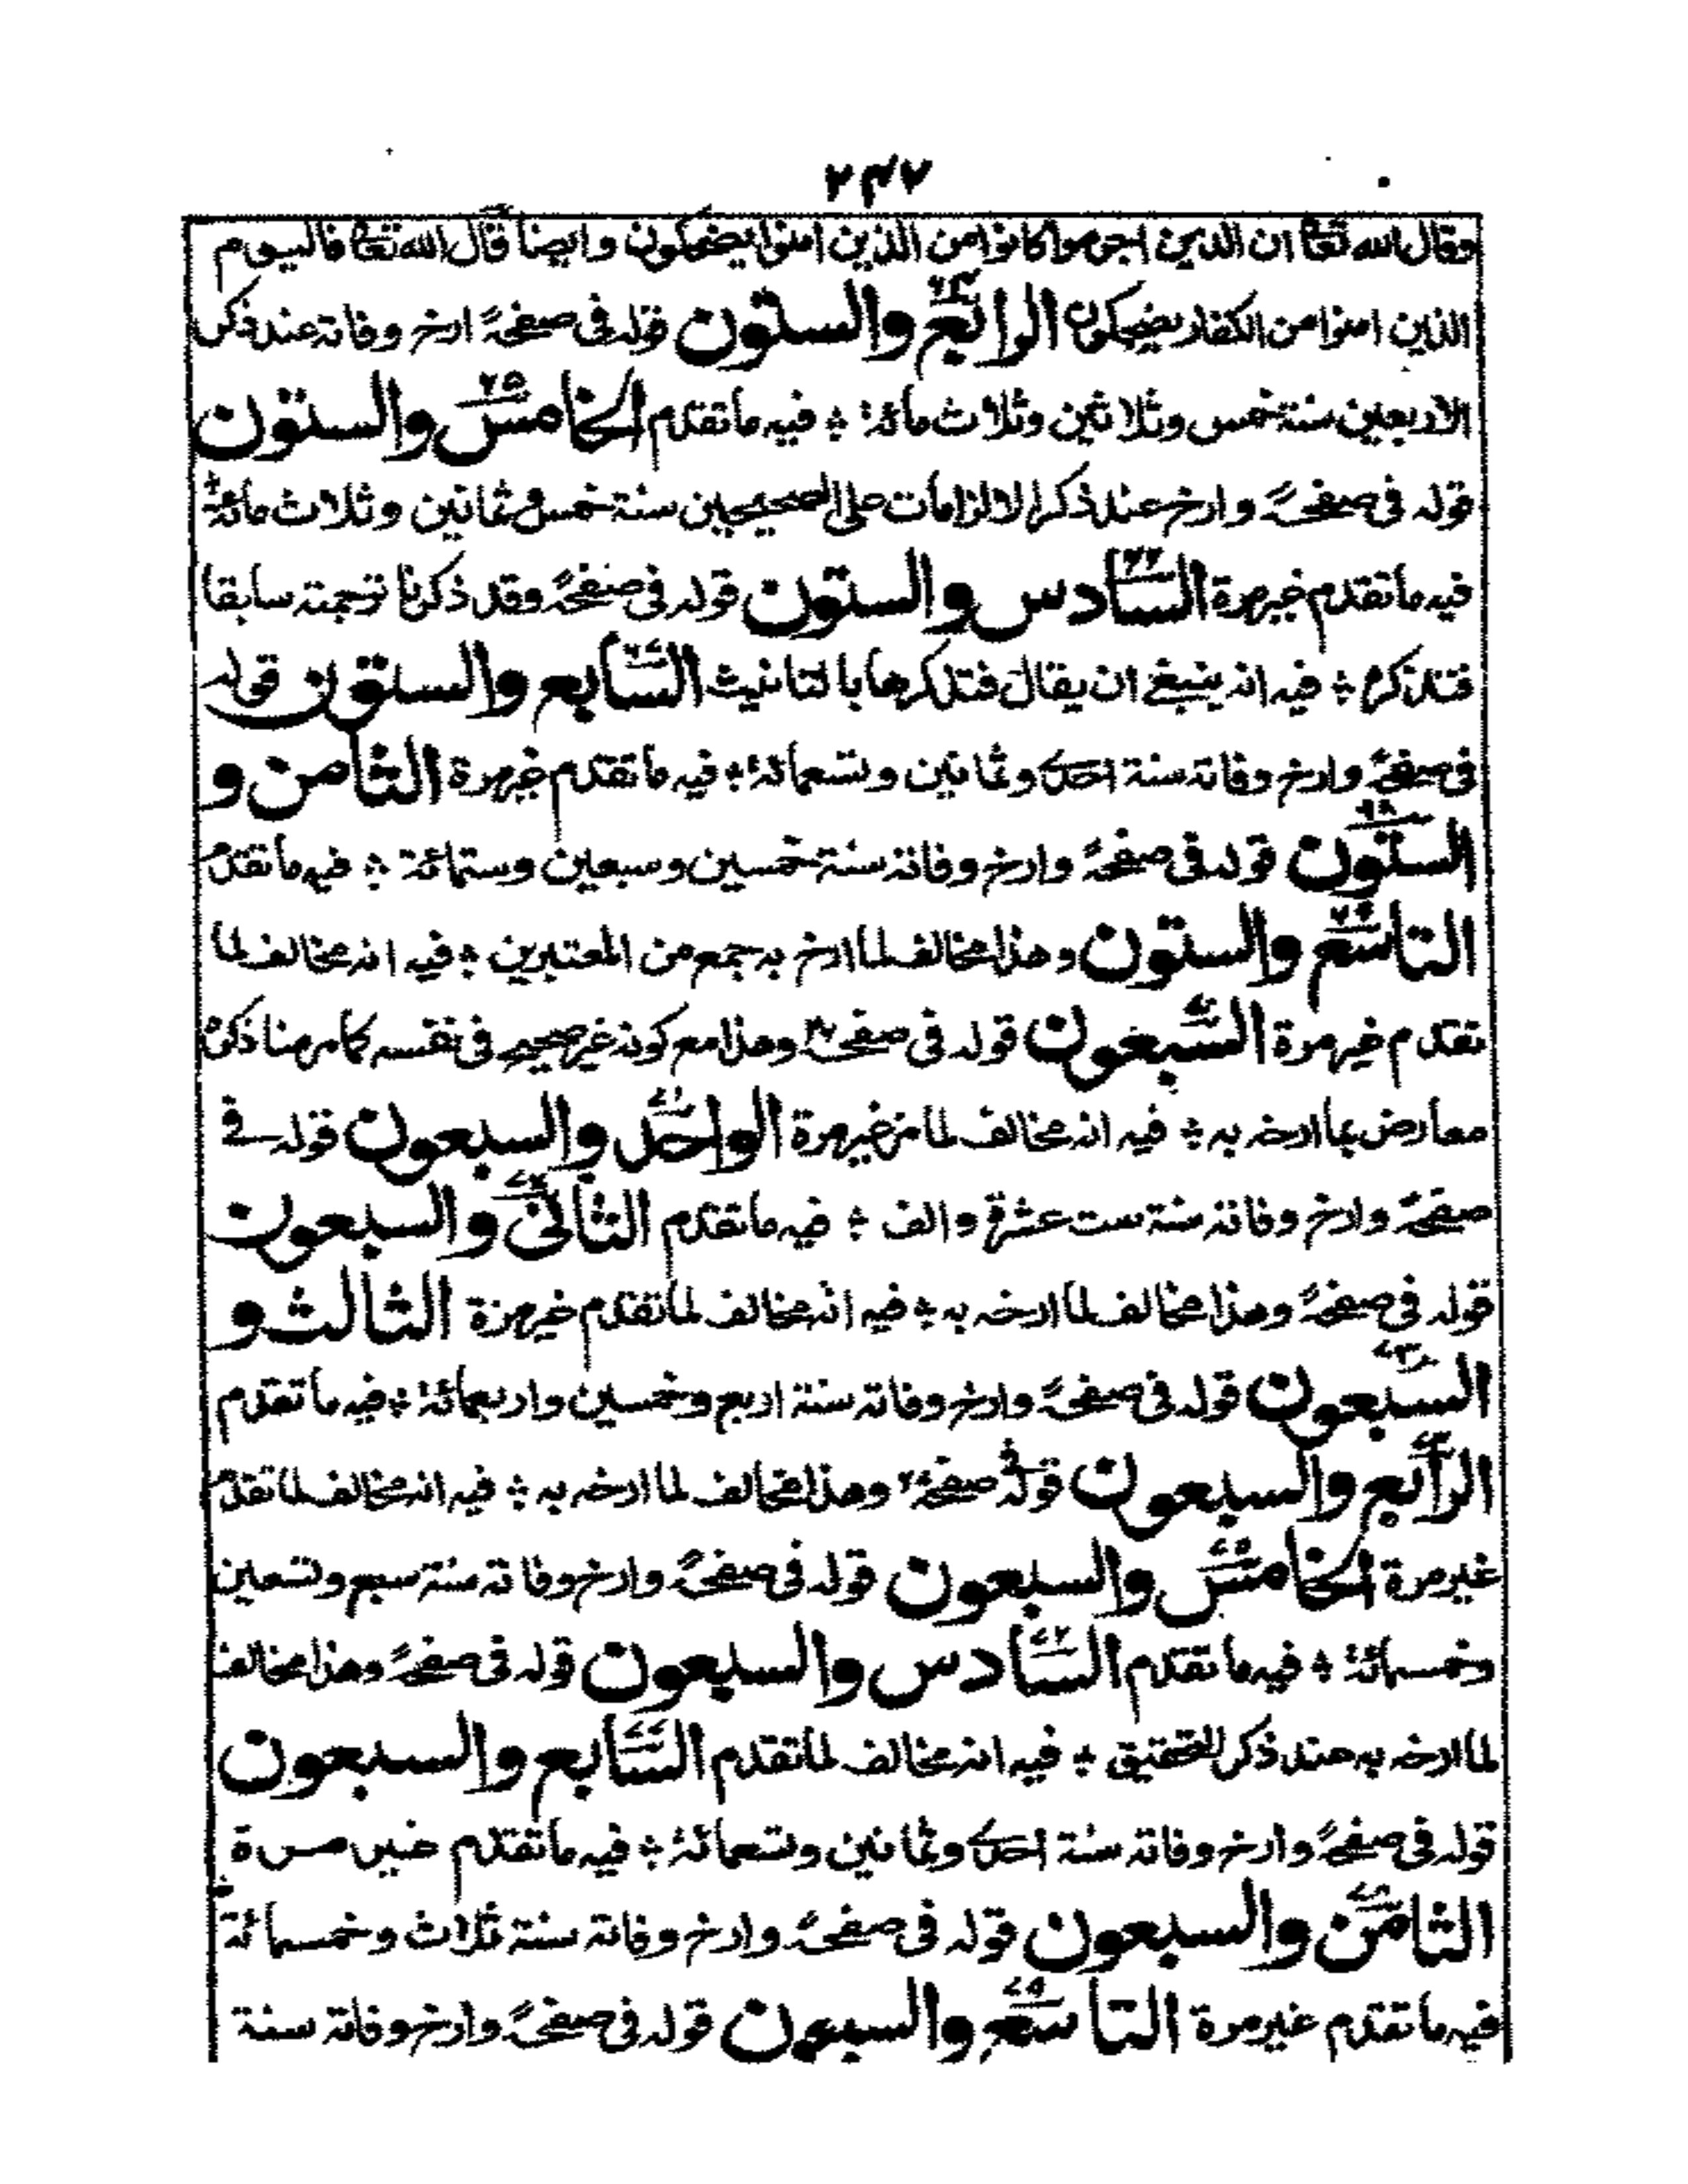 ٢٤٧
وقال الله تعالى ان الذين اجرموا كانوا من الذين امنوا يضحكون وايضا قال الله تعالى فاليوم
الذين امنوا من الكفار يضحكون الرابع والستون قوله فى صفحة ارخ وفاته عند ذكر
الاربعين سنة خمس وثلاثين وثلاث مائة ؛ فيه ما تقدم الخامس والستون ٦٥
قوله فى صفحة وارخ عند ذكر الالزامات على الصحيحين سنة خمس وثمانين وثلاث مائة ؛
فيه ما تقدم غير مرة السادس والستون ٦٦ قوله فى صفحة وقد ذكرنا ترجمته سابقا
فتذكره ؛ فيه انه ينبغى ان يقال فتذكرها بالتانيث السابع والستون قوله
فى صفحة وارخ وفاته سنة احدى وثمانين وتسعمائة ؛ فيه ما تقدم غير مرة الثامن و
الستون ٦٨ قوله فى صفحة وارخ وفاته سنة خمسين وسبعين وستمائة ؛ فيه ما تقدم
التاسع والستون وهذا مخالف لما ارخ به جمع من المعتبرين ؛ فيه انه مخالف لما
تقدم غير مرة السبعون قوله فى صفحة وهذا مع كونه غير صحيح فى نفسه كما مر منا ذكره
معارض بما ارخه به ؛ فيه انه مخالف لما مر غير مرة الواحد والسبعون ٧١ قوله فى
صفحة وارخ وفاته سنة ست عشرة والف ؛ فيه ما تقدم الثانى والسبعون ٧٢
قوله فى صفحة وهذا مخالف لما ارخه به ؛ فيه انه مخالف لما تقدم غير مرة الثالث و
السبعون ٧٣ قوله فى صفحة وارخ وفاته سنة اربع وخمسين واربعمائة ؛ فيه ما تقدم
الرابع والسبعون قوله فى صفحة وهذا مخالف لما ارخه به ؛ فيه انه مخالف لما تقدم
غير مرة الخامس والسبعون ٧٥ قوله فى صفحة وارخ وفاته سنة سبع وتسعين
وخمسمائة ؛ فيه ما تقدم السادس والسبعون ٧٦ قوله فى صفحة وهذا مخالف
لما ارخه به عند ذكر التحقيق ؛ فيه انه مخالف لما تقدم السابع والسبعون ٧٧
قوله فى صفحة وارخ وفاته سنة احدى وثمانين وتسعمائة ؛ فيه ما تقدم غير مرة
الثامن والسبعون ٧٨ قوله فى صفحة وارخ وفاته سنة ثلاث وخمسمائة ؛
فيه ما تقدم غير مرة التاسع والسبعون ٧٩ قوله فى صفحة وارخ وفاته سنة